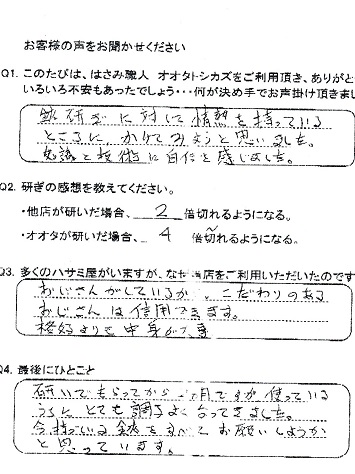 お客様の声をお聞かせください
Q1. このたびは、はさみ職人 オオタトシカズをご利用頂き、ありがと
いろいろ不安もあったでしょう・・・何が決め手でお声掛け頂きまし
研ぎに対して情熱を持っている
ところにかけてみようと思いました。
知識と技術に自信を感じました。
Q2. 研ぎの感想を教えてください。
・他店が研いだ場合、 2 倍切れるようになる。
・オオタが研いだ場合、 4 倍〜切れるようになる。
Q3. 多くのハサミ屋がいますが、なぜ当店をご利用いただいたのです
おじさんがしているから、こだわりのある
おじさんは信用できます。
格好よりも中身が大事
Q4. 最後にひとこと
研いでもらってから ヶ月ですが使っている
うちにとても調子よくなってきました。
今持っている鋏をすべてお願いしようか
と思っています。